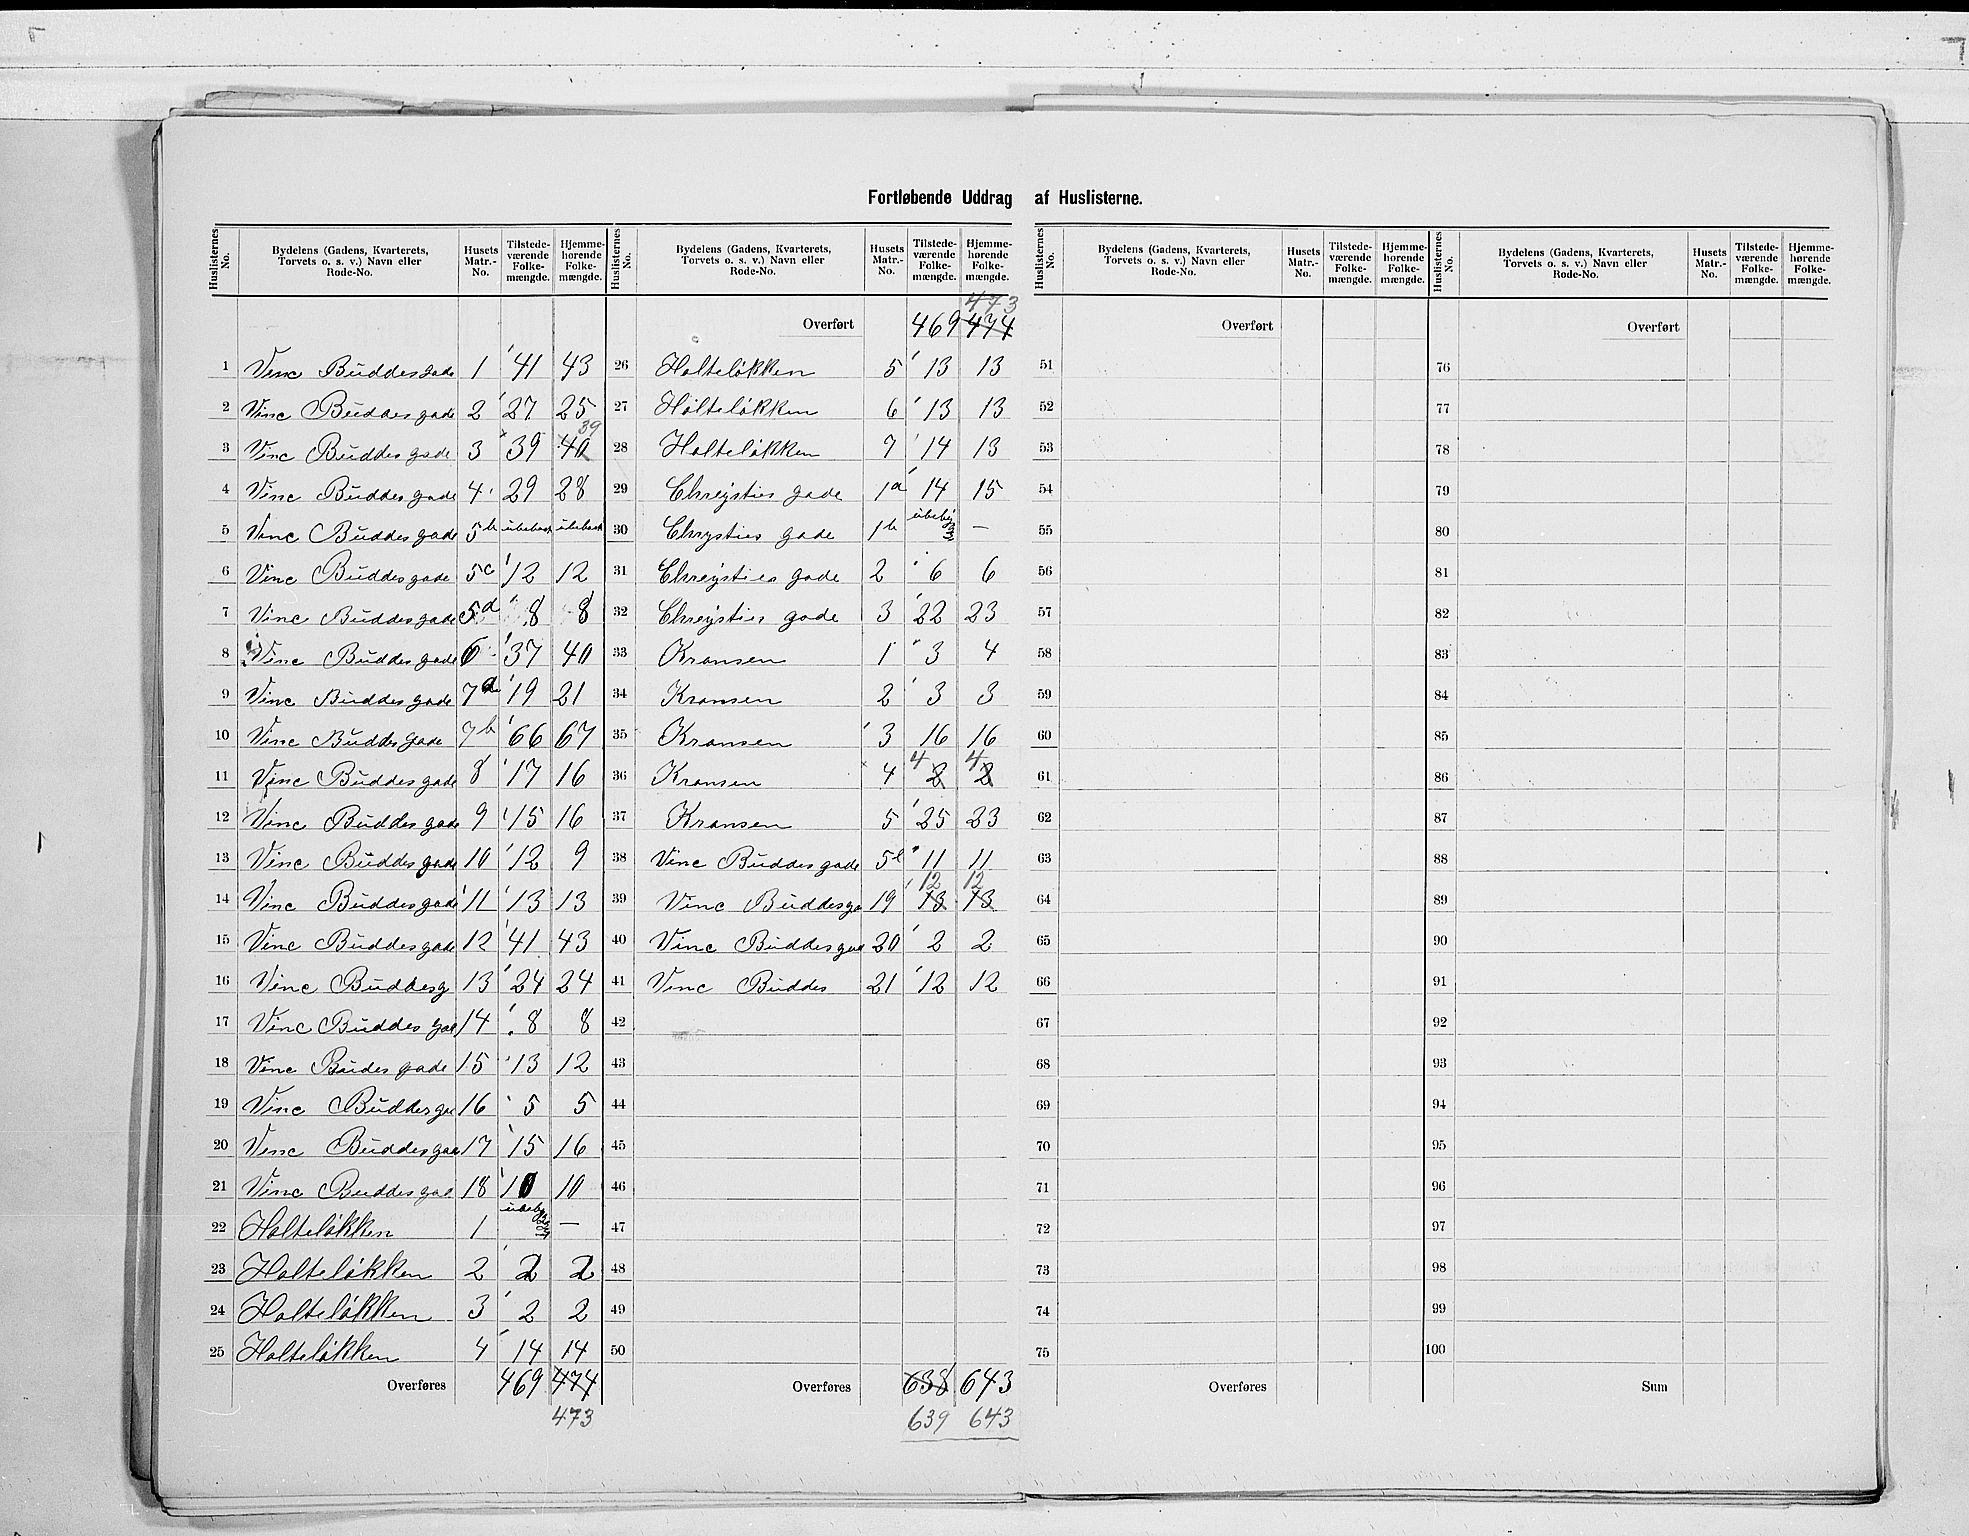 Fortløbende Uddrag af Huslisterne.
Huslisternes No. Bydelens (Gadens, Kvarterets, Torvets o. s. v.) Navn eller Rode-No. Husets Matr.-No. Tilstedeværende Folkemængde. Hjemmehørende Folkemængde.
1 Vinc Buddesgade 1 41 43
2 Vinc Buddesgade 2 27 25
39
3 Vinc Buddesgade 3 39 40
4 Vinc Buddesgade 4 29 28
5 Vinc Buddesgade 5b ubeboet ubeboet
6 Vinc Buddesgade 5c 12 12
7 Vinc Buddesgade 5d 8 8
8 Vinc Buddesgade 6 37 40
9 Vinc Buddesgade 7a 19 21
10 Vinc Buddesgade 7b 66 67
11 Vinc Buddesgade 8 17 16
12 Vinc Buddesgade 9 15 16
13 Vinc Buddesgade 10 12 9
14 Vinc Buddesgade 11 13 13
15 Vinc Buddesgade 12 41 43
16 Vinc Buddesg 13 24 24
17 Vinc Buddes gae 14 8 8
18 Vinc Buddes gade 15 13 12
19 Vinc Buddesga 16 5 5
20 Vinc Buddesgaa 17 15 16
21 Vinc Buddesgae 18 10 10
22 Holteløkken 1 —
23 Holteløkken 2 2 2
24 Holteløkken 3 2 2
25 Holteløkken 4 14 14
Overføres 469 474
473
Huslisternes No. Bydelens (Gadens, Kvarterets, Torvets o. s. v.) Navn eller Rode-No. Husets Matr.-No. Tilstedeværende Folkemængde. Hjemmehørende Folkemængde.
473
Overført 469 474
26 Holteløkken 5 13 13
27 Holteløkken 6 13 13
28 Holteløkken 7 14 13
29 Chrysties gade 1a 14 15
30 Chrysties gade 1b —
31 Chrysties gade 2 6 6
32 Chrysties gade 3 22 23
33 Kransen 1 3 4
34 Kransen 2 3 3
35 Kransen 3 16 16
4 4
36 Kransen 4 2 2
37 Kransen 5 25 23
38 Vinc Buddesgade 5e 11 11
12 12
39 Vinc Buddesga 19 13 13
40 Vinc Buddesgaa 20 2 2
41 Vinc Buddes 21 12 12
42
43
44
45
46
47
48
49
50
Overføres 638 643
639 643
Huslisternes No. Bydelens (Gadens, Kvarterets, Torvets o. s. v.) Navn eller Rode-No. Husets Matr.-No. Tilstedeværende Folkemængde. Hjemmehørende Folkemængde.
Overført
51
52
53
54
55
56
57
58
59
60
61
62
63
64
65
66
67
68
69
70
71
72
73
74
75
Overføres
Huslisternes No. Bydelens (Gadens, Kvarterets, Torvets o. s. v.) Navn eller Rode-No. Husets Matr.-No. Tilstedeværende Folkemængde. Hjemmehørende Folkemængde.
Overført
76
77
78
79
80
81
82
83
84
85
86
87
88
89
90
91
92
93
94
95
96
97
98
99
100
Sum